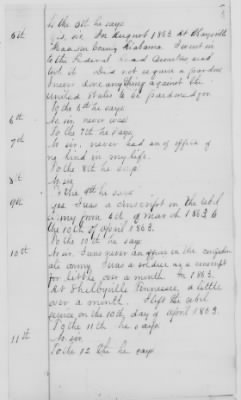 To the 5th he says
5th
Yes, sir. In August 1863 at Maysville
Madison County Alabama I went in
to the Federal lines and
took it. Did not require a pardon
I never done anything against the
United States to be pardoned for.
To the 6th he says
6th
No, sir, never was
To the 7th he says
7th
No sir, never had an office of
no kind in my life.
To the 8th he says
8th
No sir
To the 9th he says
9th
Yes I was a conscript in the rebel
army from 4th of March 1863 to
the 10th of April 1863.
To the 10th he says
10th
No sir. I was never an officer in the confeder
ate army. I was a soldier as a conscript
for little over a month. In 1863.
At Shelbyville Tennessee, a little
over a month. I left the rebel
service on the 10th day of April 1863.
To the 11th he says
11th
No sir
To the 12th he says